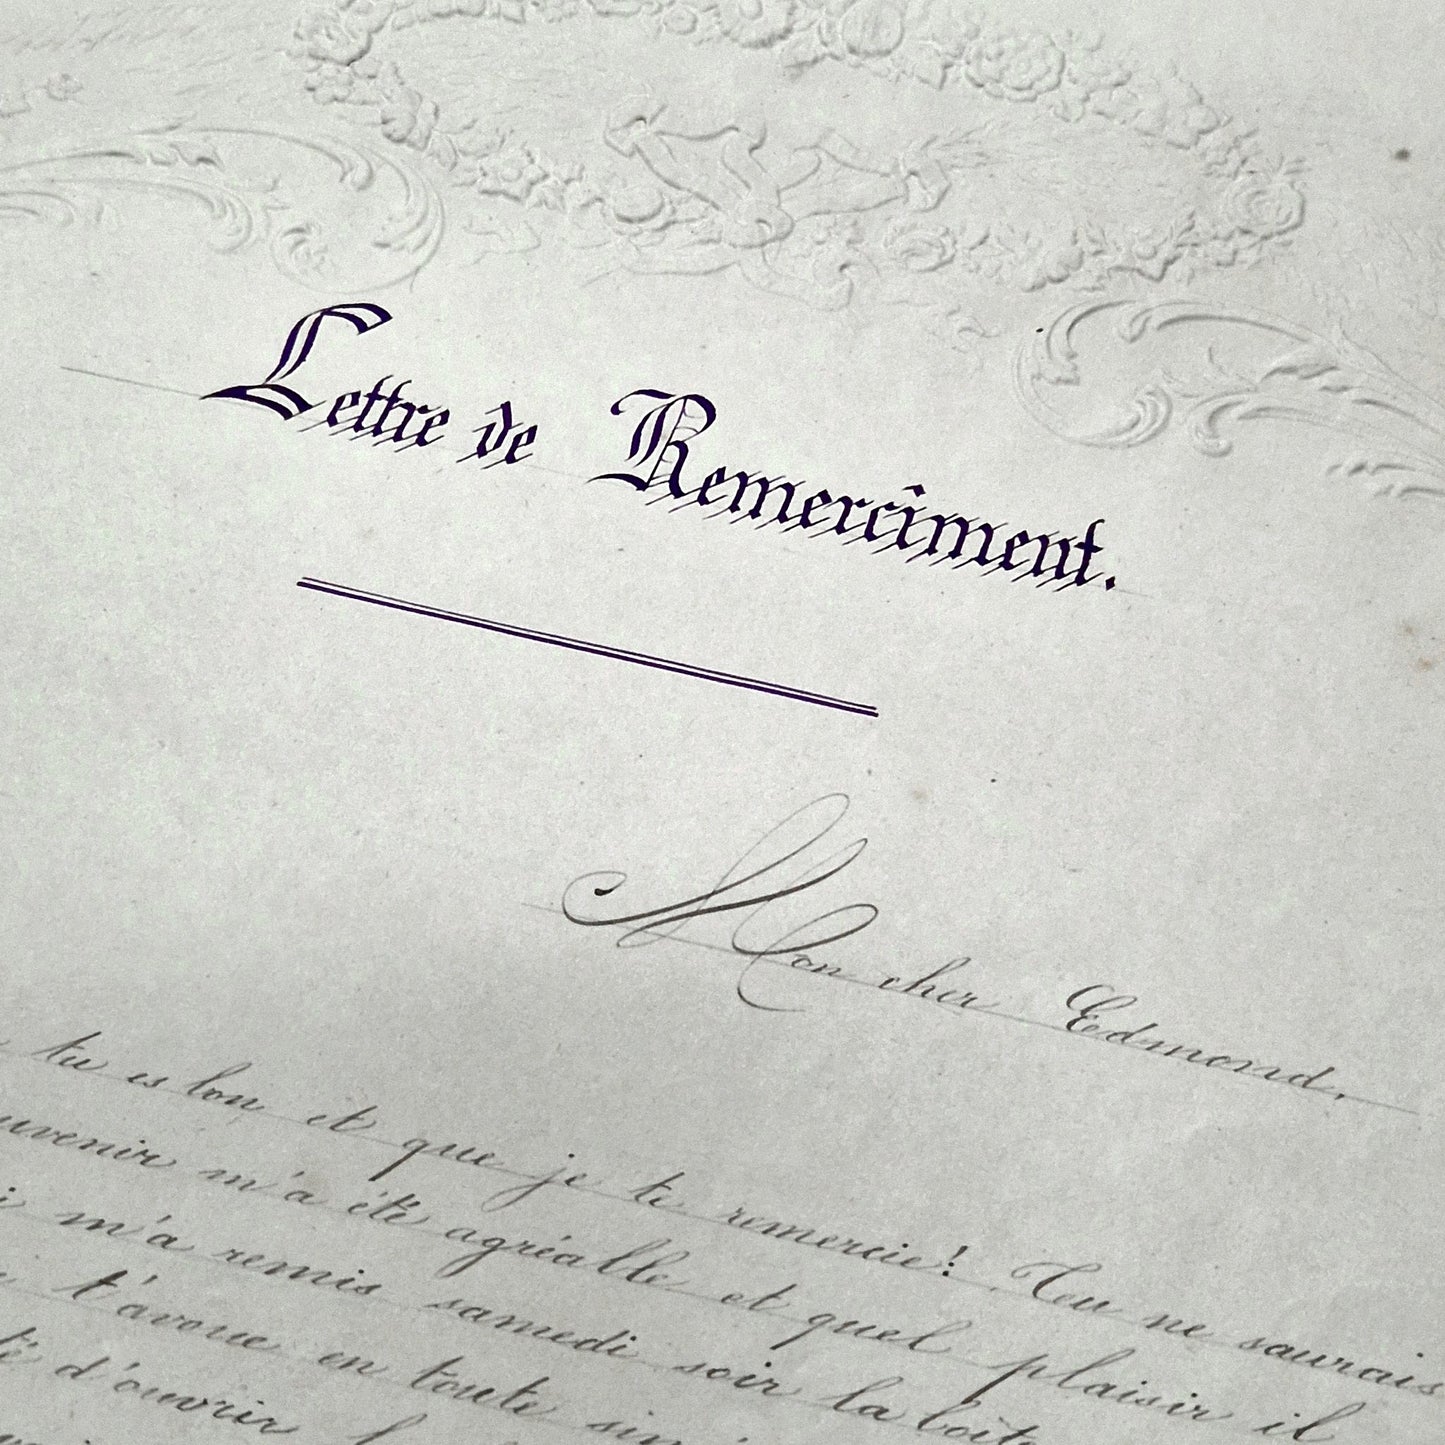 Lettre de Remercîment.
Mon cher Edmond,
tu es bon et que je te remercie! Tu ne saurais
m'a été agréable et quel plaisir il
m'a remis samedi soir la boîte
t'avoue en toute
d'ouvrir